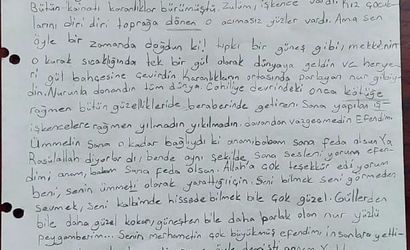 Bütün kainatı karanlıklar bürümüştü. Zulüm, işkence vardı. Kız çocuk-
larını diri diri toprağa dönen o acımasız yüzler vardı. Ama sen
öyle bir zamanda doğdun ki! tıpkı bir güneş gibi, mekke'nin
o kurak sıcaklığında tek bir gül olarak dünyaya geldin ve her ye-
ri gül bahçesine çevirdin. Karanlıkların ortasında parlayan nur gibiy-
din. Nurunla donandın tüm dünya. Cahiliye devrindeki onca kötülüğe
rağmen bütün güzellikleride beraberinde getiren. Sana yapılan
işkencelere rağmen yılmadın yıkılmadın, davandan vazgeçmedin Efendim.
Ümmetin sana o kadar bağlıydı ki anam babam sana feda olsun Ya
Rasulallah diyorlardı, bende aynı şekilde sana sesleniyorum efen-
dim anam, babam Sana feda olsun. Allah'a çok teşekkür ediyorum
beni, senin ümmeti olarak yarattığı için. Seni bilmek seni görmeden
sevmek, seni kalbimde hissedebilmek bile çok güzel. Güllerden
bile daha güzel kokan, güneşten bile daha parlak olan nur yüzlü
peygamberim... Senin merhametin çok büyükmüş efendim insanlara yetti-